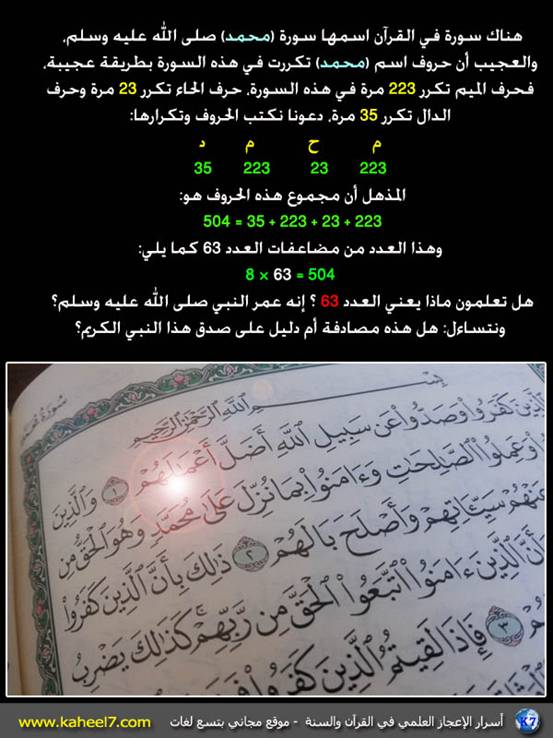 هناك سورة في القرآن اسمها سورة (محمد) صلى الله عليه وسلم،
والعجيب أن حروف اسم (محمد) تكررت في هذه السورة بطريقة عجيبة،
فحرف الميم تكرر 223 مرة في هذه السورة، حرف الحاء تكرر 23 مرة وحرف
الدال تكرر 35 مرة، دعونا نكتب الحروف وتكرارها:
م ح م د
223 23 223 35
المذهل أن مجموع هذه الحروف هو:
504 = 35 + 223 + 23 + 223
وهذا العدد من مضاعفات العدد 63 كما يلي:
8 × 63 = 504
هل تعلمون ماذا يعني العدد 63 ؟ إنه عمر النبي صلى الله عليه وسلم؟
ونتساءل: هل هذه مصادفة أم دليل على صدق هذا النبي الكريم؟
بِسْمِ ٱللَّهِ ٱلرَّحْمَٰنِ ٱلرَّحِيمِ
ٱلَّذِينَ كَفَرُوا۟ وَصَدُّوا۟ عَن سَبِيلِ ٱللَّهِ أَضَلَّ أَعْمَٰلَهُمْ ١ وَٱلَّذِينَ
وَعَمِلُوا۟ ٱلصَّٰلِحَٰتِ وَءَامَنُوا۟ بِمَا نُزِّلَ عَلَىٰ مُحَمَّدٍ وَهُوَ ٱلْحَقُّ مِن
عَنْهُمْ سَيِّـَٔاتِهِمْ وَأَصْلَحَ بَالَهُمْ ٢ ذَٰلِكَ بِأَنَّ ٱلَّذِينَ كَفَرُوا۟
وَأَنَّ ٱلَّذِينَ ءَامَنُوا۟ ٱتَّبَعُوا۟ ٱلْحَقَّ مِن رَّبِّهِمْ كَذَٰلِكَ يَضْرِبُ
٣ فَإِذَا لَقِيتُمُ ٱلَّذِينَ كَفَرُوا۟
أسرار الإعجاز العلمي في القرآن والسنة - موقع مجاني بتسع لغات www.kaheel7.com